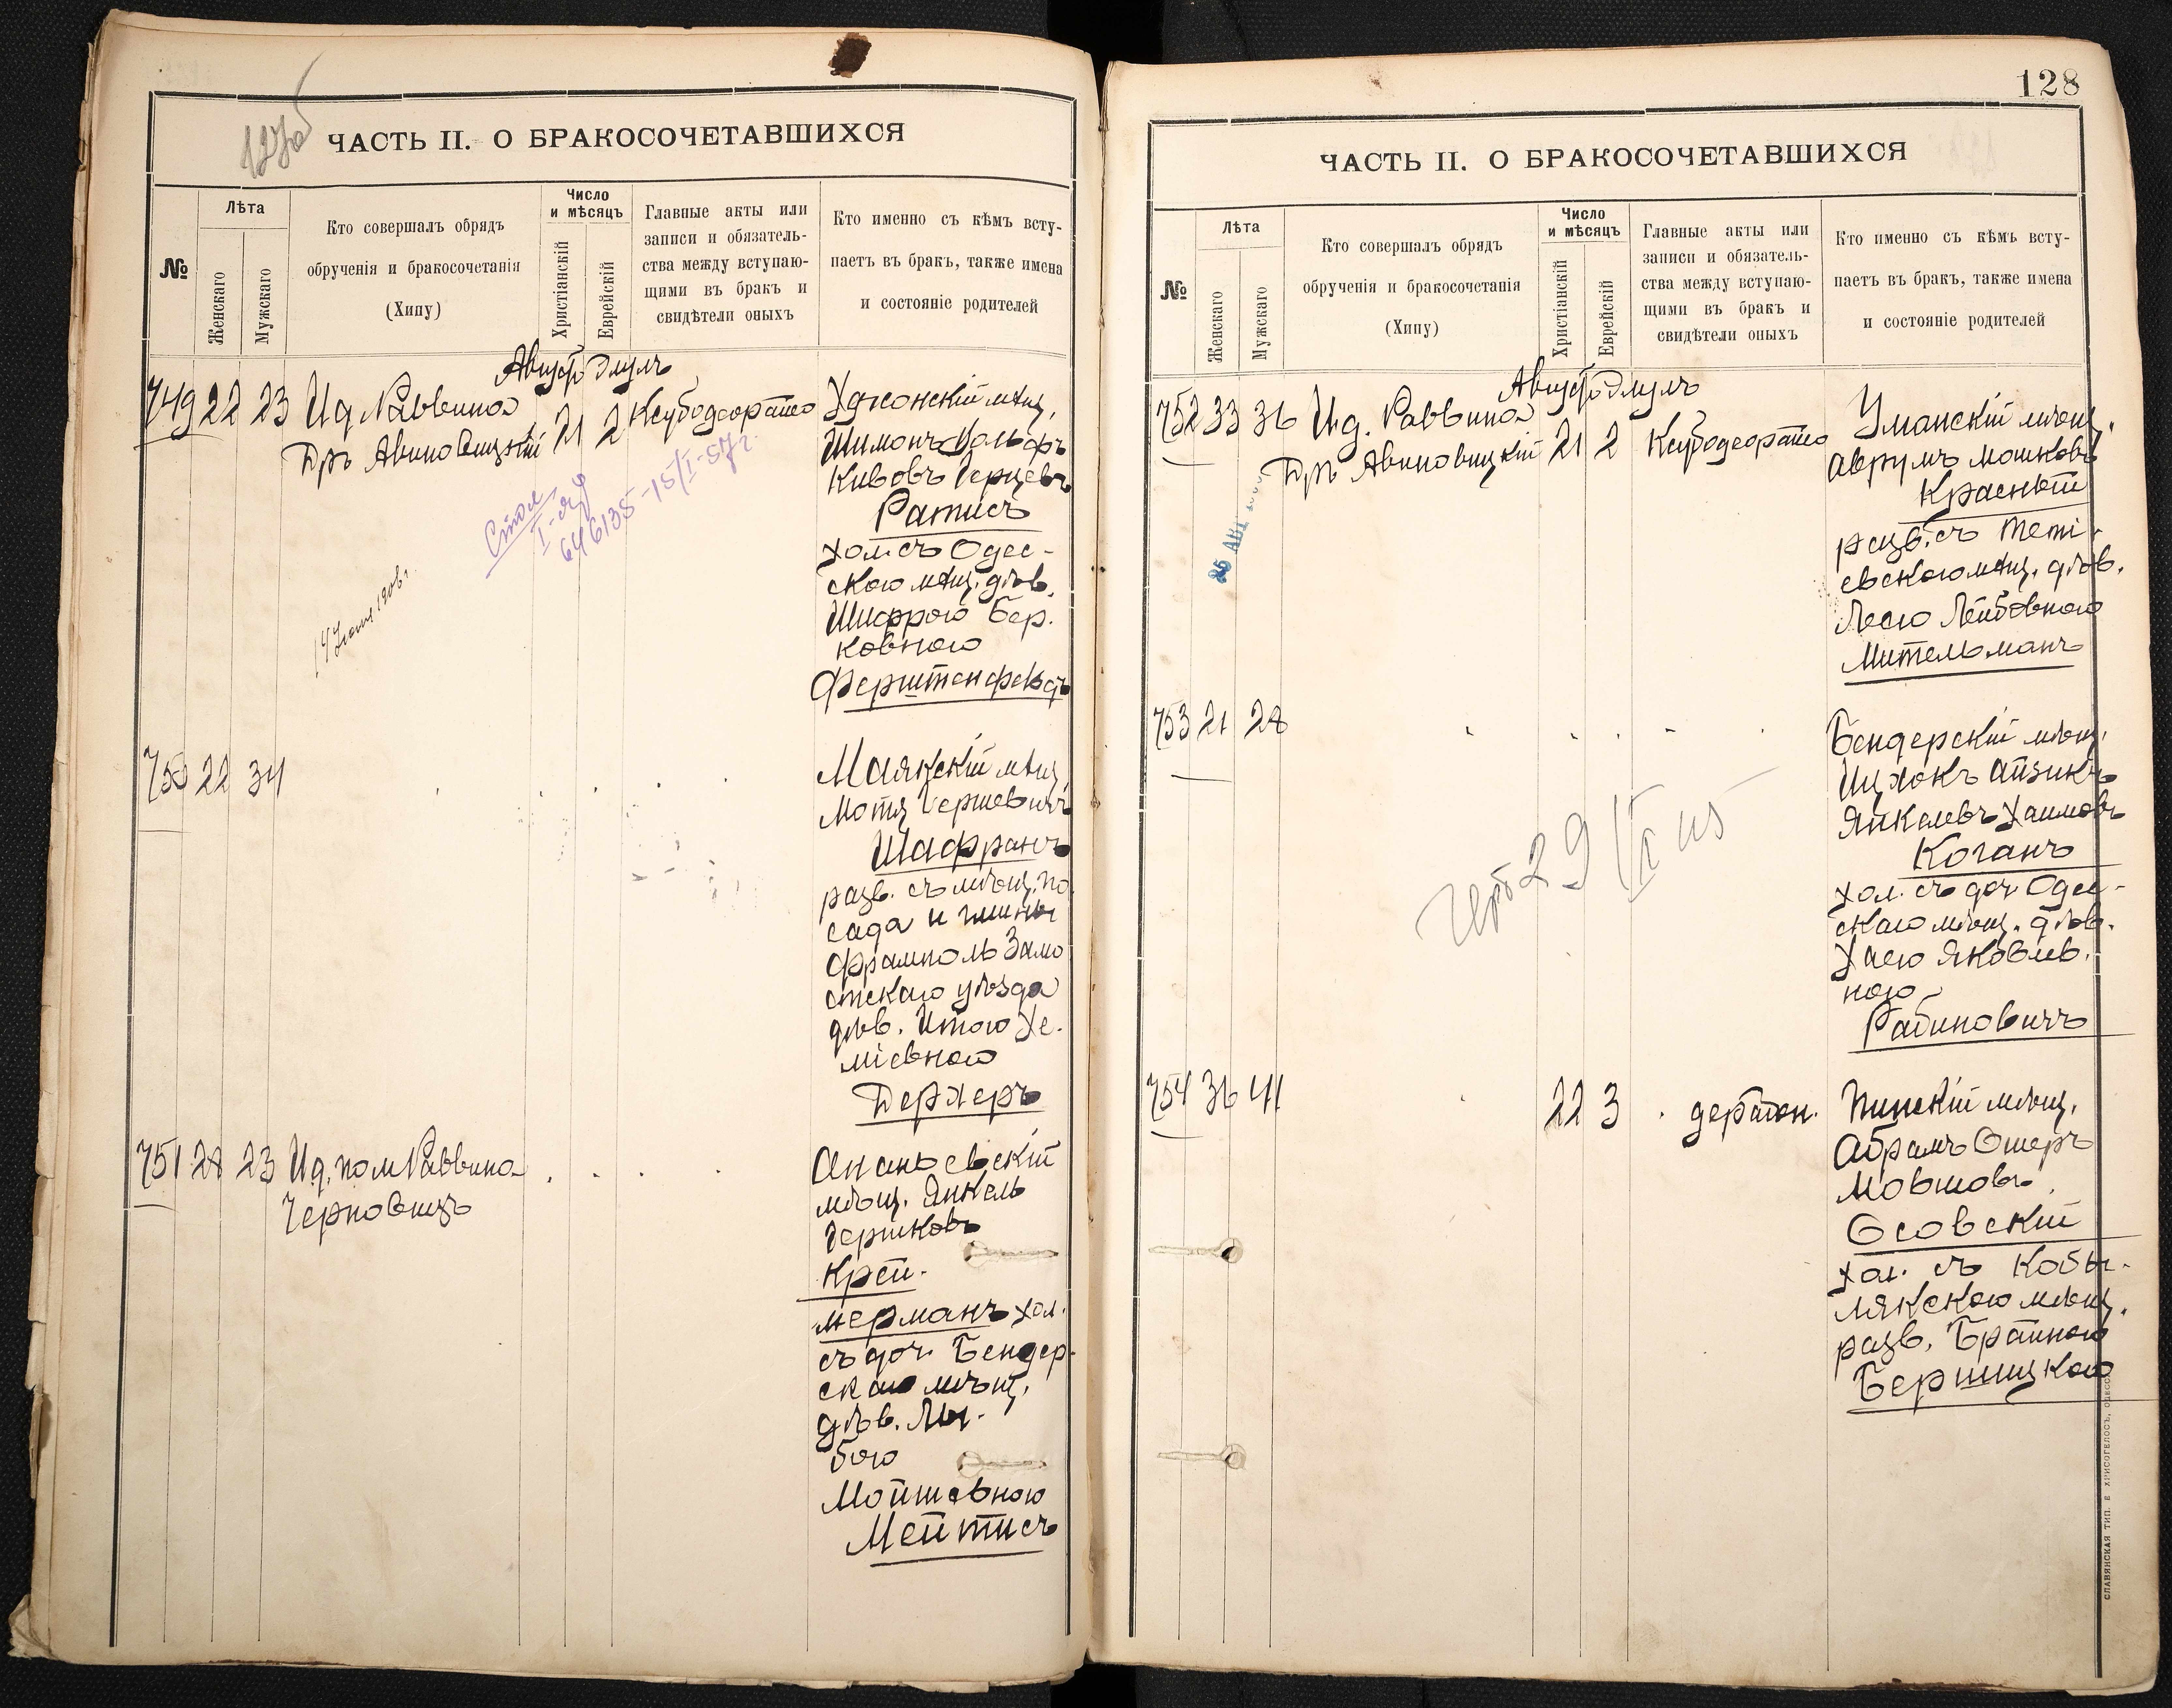 127об
ЧАСТЬ II. О БРАКОСОЧЕТАВШИХСЯ
№
Лѣта
Женскаго
Мужскаго
Кто совершалъ обрядъ
обрученія и бракосочетанія
(Хипу)
Число
и мѣсяцъ
Христіанскій
Еврейскій
Главные акты или
записи и обязатель-
ства между вступаю-
щими въ бракъ и
свидѣтели оныхъ
Кто именно съ кѣмъ всту-
паетъ въ бракъ, также имена
и состояніе родителей
Августъ Элулъ
749 22 23 Ид Раввина
Дръ Авиновицкій 21 2
мѣщ.
Шимонъ Вольфъ
Кивовъ Герцевъ
Ратнсъ
хол. съ Одес-
скою мѣщ. дѣв.
Шифрою Бер-
ковною
Ферштенфельдъ
Стол
646135-15/I-57г.
750 22 34
Маякскій мѣщ.
Мотя Гершевичъ
Шафранъ
разв. съ мѣщ. по-
сада и гмины
Фрамполь Замо
стскаго уѣзда
дѣв. Итою Хе-
міевною
Дерхеръ
751 28 23 Ид. пом Раввина
Черновицъ
Ананьевскій
мѣщ. Янкель
Гершковъ
Крей-
мерманъ хол.
съ доч. Бендер-
скаго мѣщ.
дѣв. Лы-
бою
Мойшевною
Мейтисъ
128
ЧАСТЬ II. О БРАКОСОЧЕТАВШИХСЯ
№
Лѣта
Женскаго
Мужскаго
Кто совершалъ обрядъ
обрученія и бракосочетанія
(Хипу)
Число
и мѣсяцъ
Христіанскій
Еврейскій
Главные акты или
записи и обязатель-
ства между вступаю-
щими въ бракъ и
свидѣтели оныхъ
Кто именно съ кѣмъ всту-
паетъ въ бракъ, также имена
и состояніе родителей
Августъ Элулъ
752 33 36 Ид. Раввина
Дръ Авиновицкій 21 2
25 АВГ
Уманскій мѣщ.
Аврумъ Мошковъ
Красный
разв. съ Тети-
евскою мѣщ. дѣв.
Лесю Лейбовною
Мительманъ
753 21 28
Бендерскій мѣщ.
Ицхокъ Айзикъ
Янкелевъ Хаимовъ
Коганъ
хол. съ доч Одес-
скаго мѣщ. дѣв.
Хасю Яковлев-
ною
Рабиновичъ
754 36 41 22 3
Пинскій мѣщ.
Абрамъ Ошеръ
Мовшовъ
Осовскій
хол. съ Кобы-
лякскою мѣщ.
разв. Брайною
Бершицкою
СЛАВЯНСКАЯ ТИП. Е ХРИСОГЕЛОСЪ, ОДЕССА